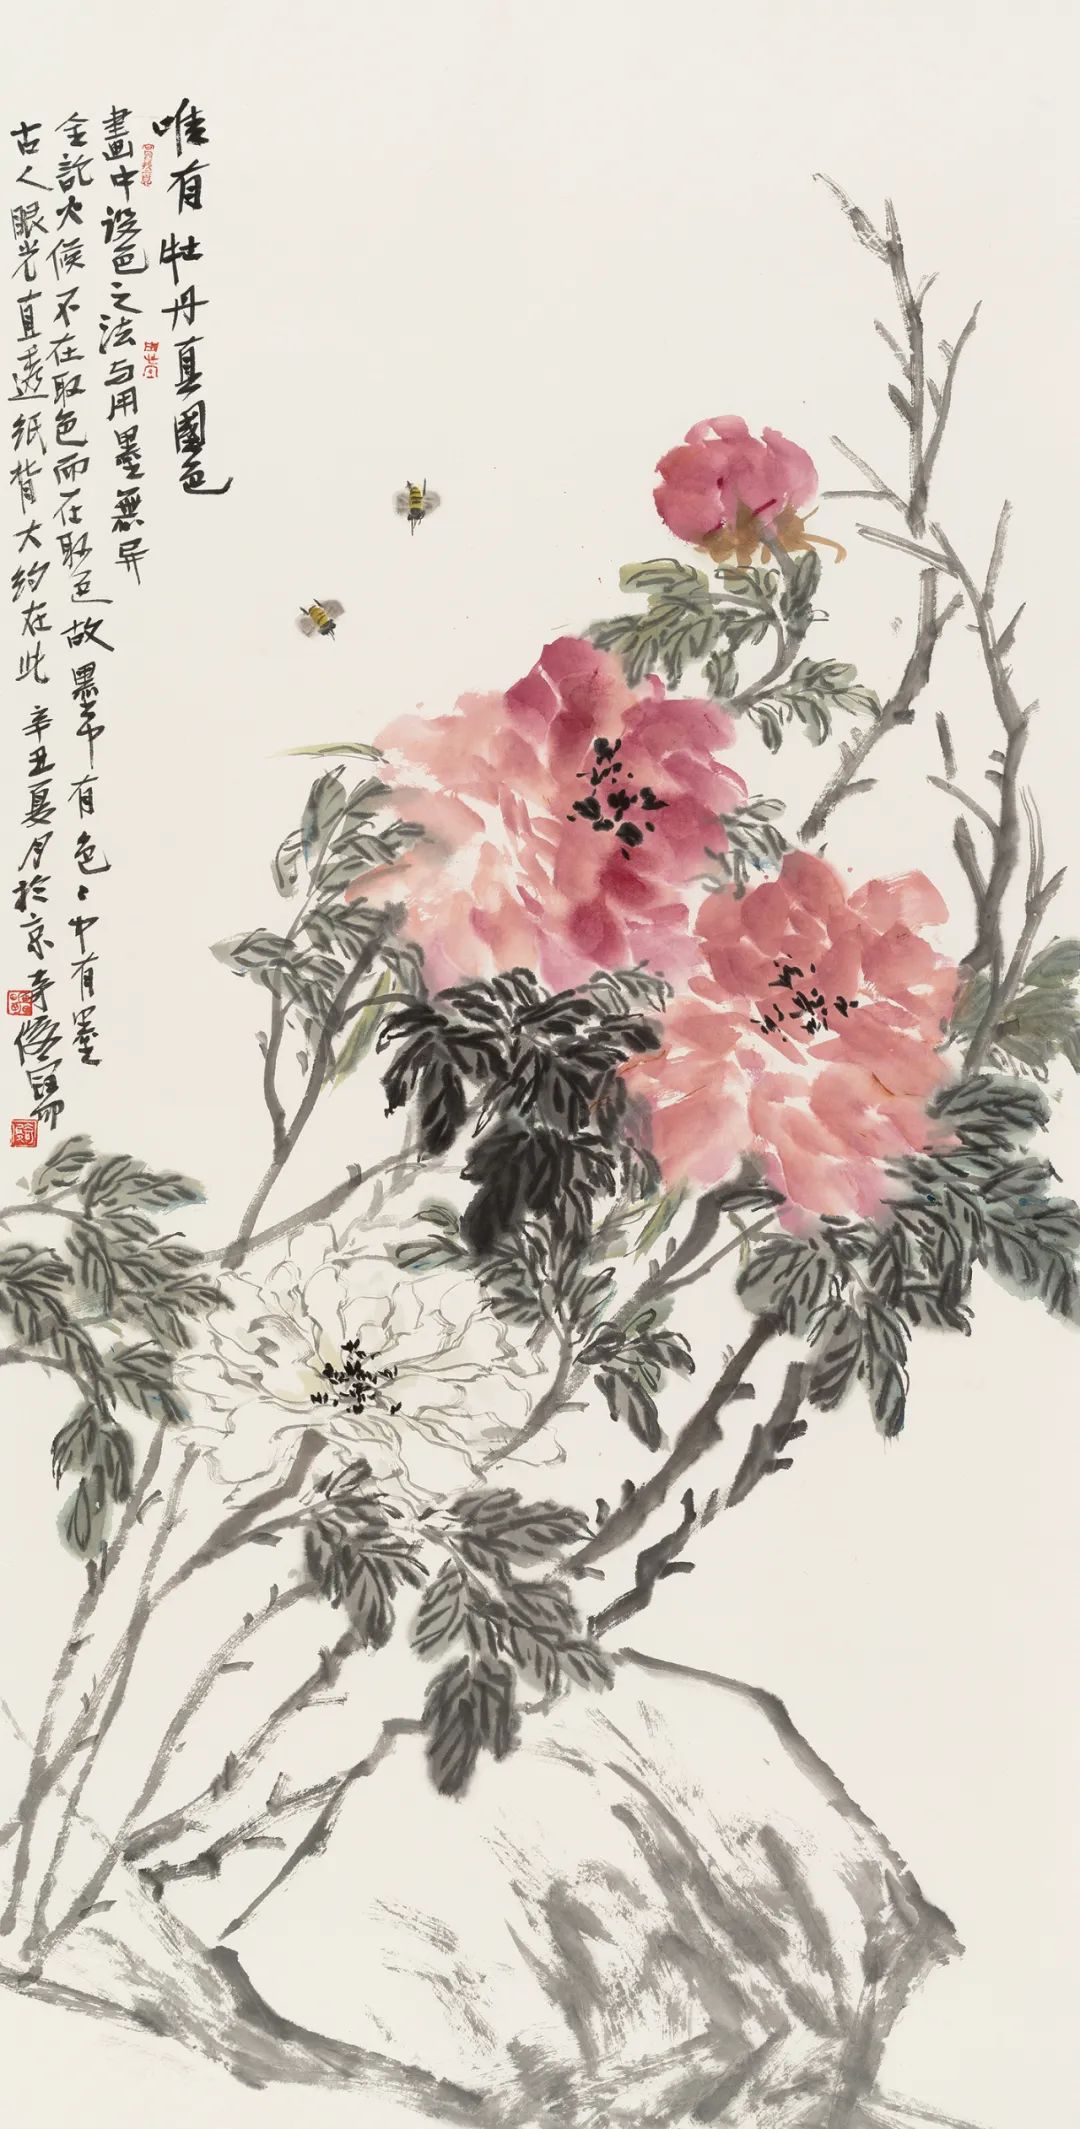 唯有牡丹真國色
畫中設色之法与用墨無异
全託火候不在取色而在取色故墨中有色〻中有墨
古人眼光直透纸背大約在此 辛丑夏月於京寺